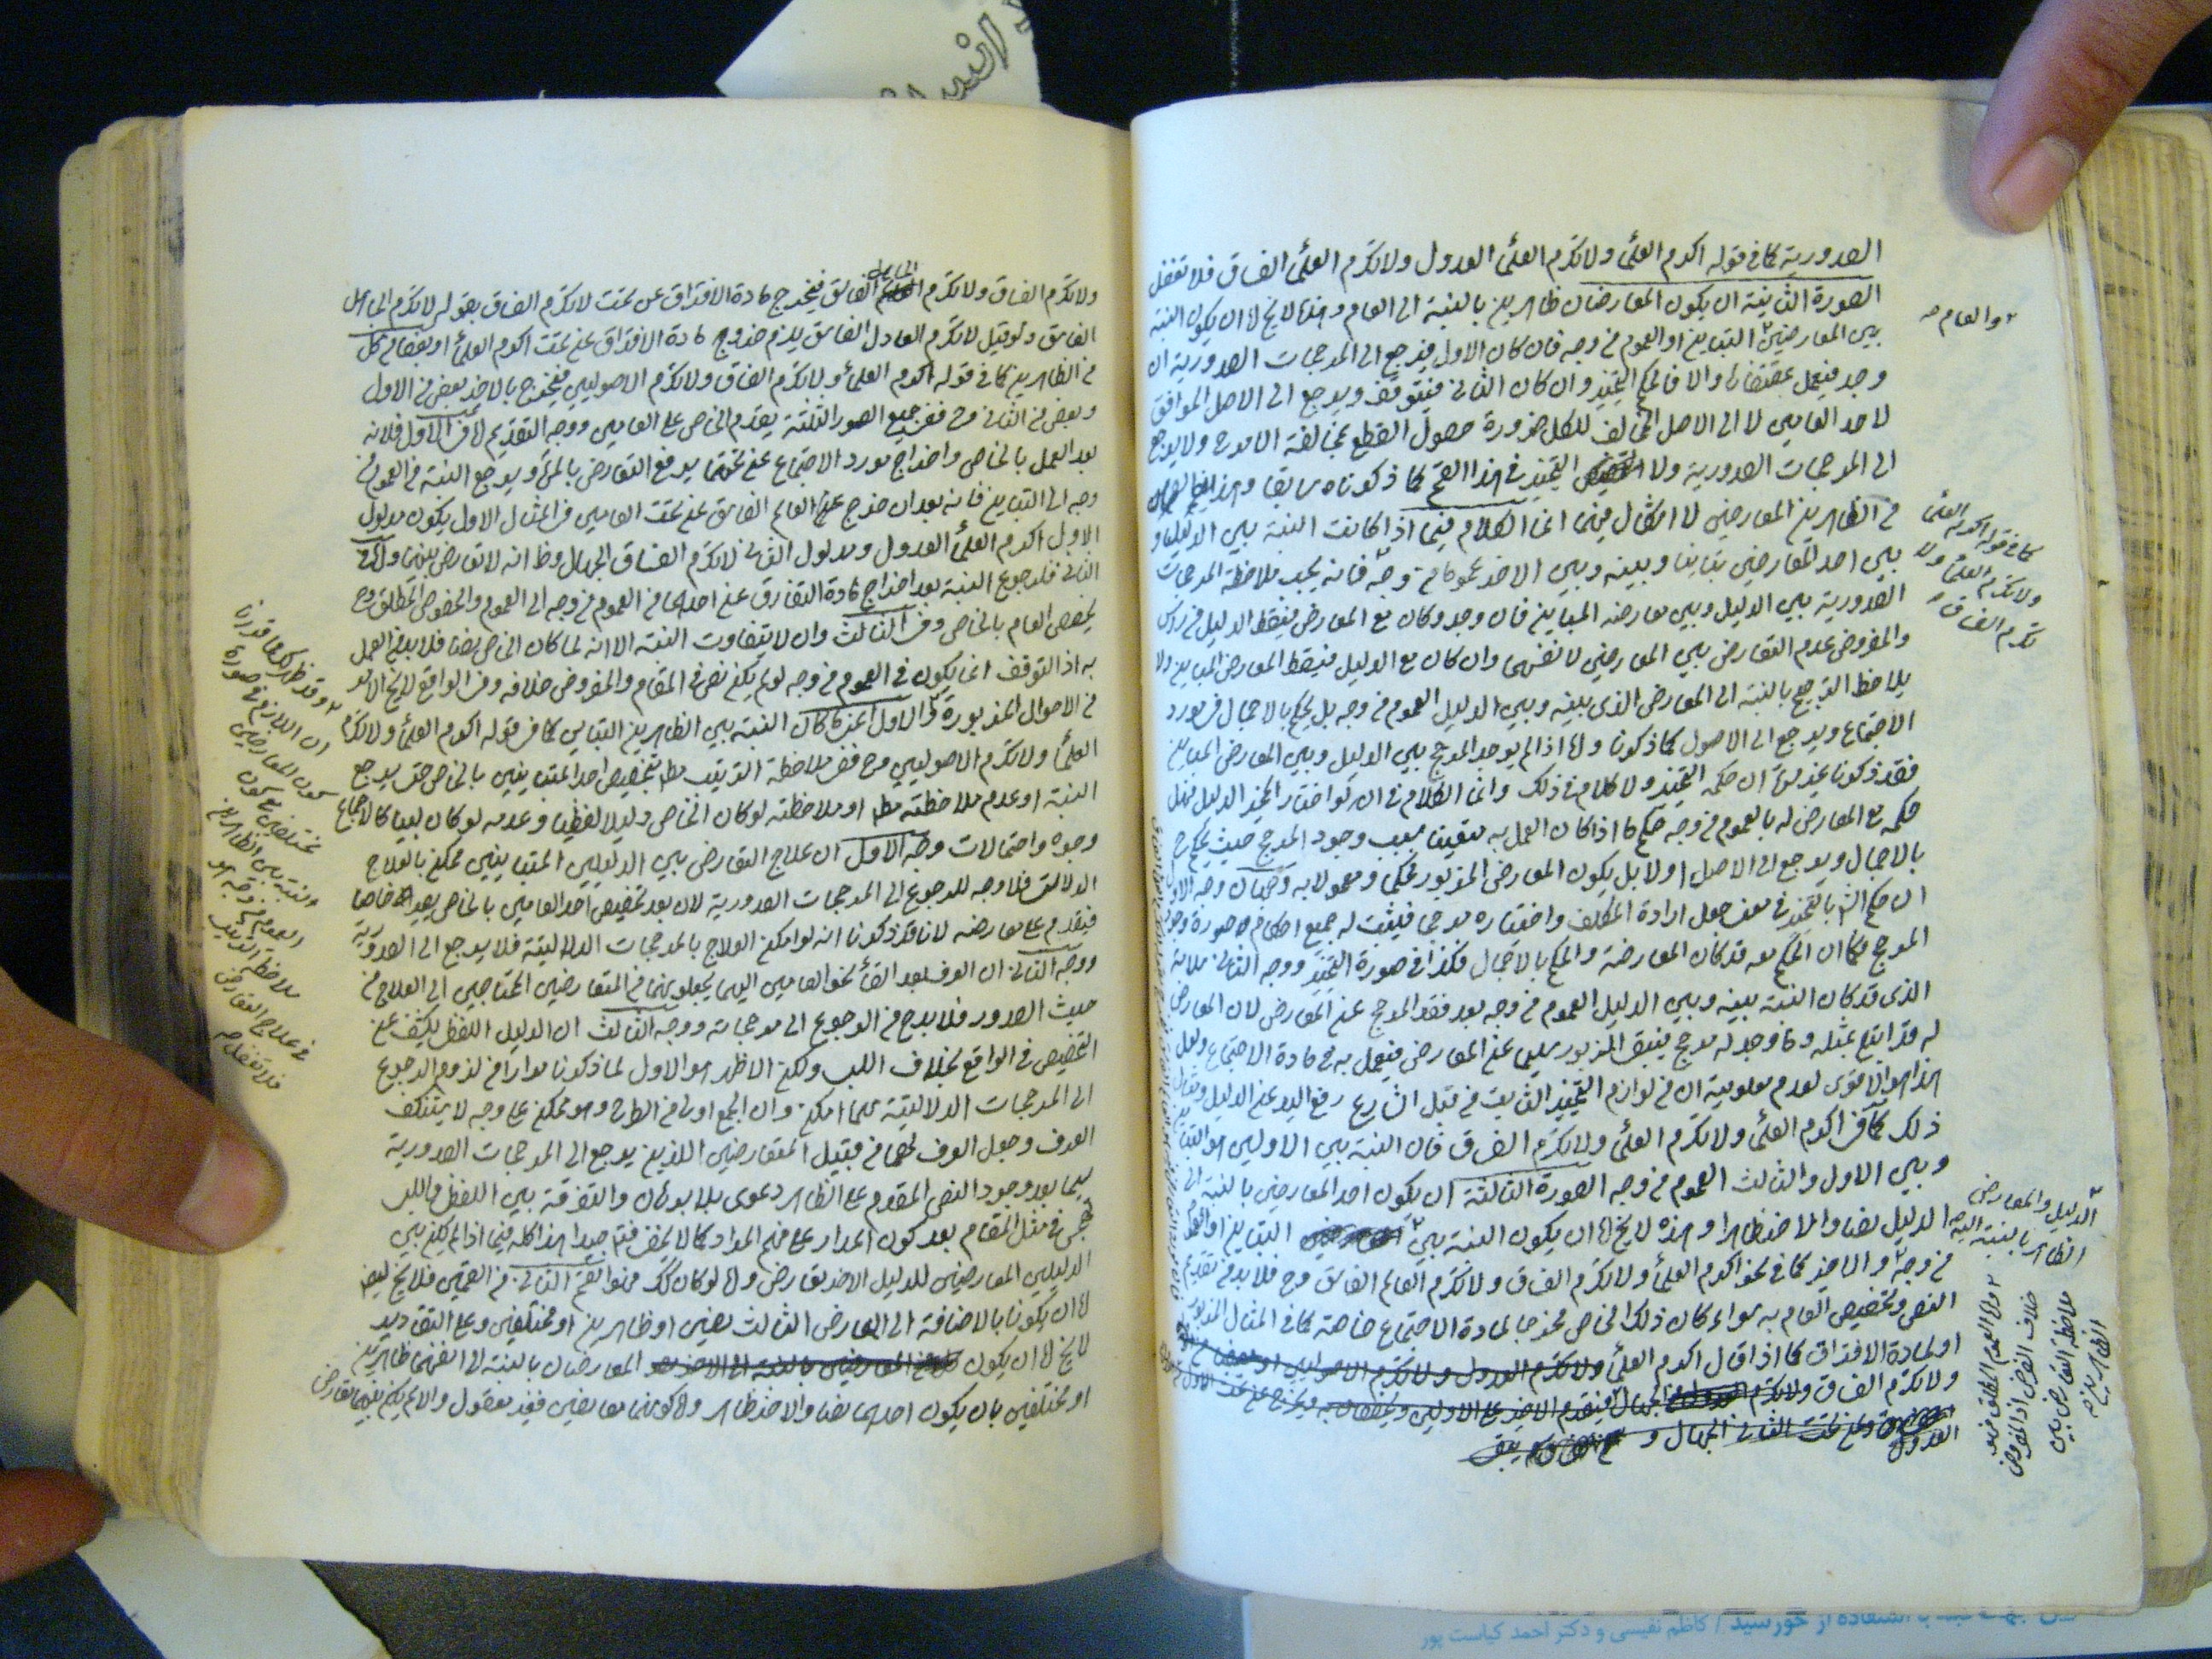 الصدورية كما فى قوله اكرم العلماء ولا تكرم العلماء العدول ولا تكرم العلماء الفساق فلا تغفل
الصورة الثانية ان يكون المعارضان ظاهرين بالنسبة الى العام وهذا لا يخ لا ان يكون النسبة
بين المعارضين التباين او العموم من وجه فان كان الاول فيرجع الى المرجحات الصدورية ان
وجد فيعمل بمقتضاها والا فالحكم التخيير وان كان الثانى فيتوقف ويرجع الى الاصل الموافق
لاحد العامين لا الى الاصل المخالف للكل ضرورة حصول القطع بمخالفة الواقع ولا يرجع
الى المرجحات الصدورية ولا التخيير فى هذا القسم كما ذكرناه سابقا وهذا
من الظاهرين المعارضين لا اشكال فيهما انما الكلام فيما اذا كانت النسبة بين الدليل و
بين احد المعارضين تباينا وبينه وبين الاخر عموما من وجه فانه يجب ملاحظة المرجحات
الصدورية بين الدليل وبين معارضه المباين فان وجد وكان مع المعارض فيسقط الدليل من راس
والمفروض عدم التعارض بين المعارضين لانفسهما وان كان مع الدليل فيسقط المعارض المباين ولا
يلاحظ الترجيح بالنسبة الى المعارض الذى بينه وبين الدليل العموم من وجه بل يحكم بالاجمال فى مورد
الاجتماع ويرجع الى الاصول كما ذكرنا واما اذا لم يوجد المرجح بين الدليل وبين المعارض المباين
فقد ذكرنا ان حكمه التخيير ولا كلام فى ذلك وانما الكلام فى ان لو اختار المخير الدليل فهل
حكمه مع المعارض له بالعموم من وجه حكم ما اذا كان العمل به متعينا بسبب وجود المرجح حيث يحكم ح
بالاجمال ويرجع الى الاصل او لا بل يكون المعارض المزبور محكما ومعمولا به وجهان وجه الاول
ان حكم الش بالتخيير فى معنى جعل ارادة المكلف واختياره مرجحا فيثبت له جميع احكام صورة وجود
المرجح فكما ان الحكم معه قد كان المعارضة والحكم بالاجمال فكذا فى صورة التخيير ووجه الثانى ملاحظة
الذى قد كان النسبة بينه وبين الدليل العموم من وجه بعد فقد المرجح عن المعارض لان المعارض
له قد ابتلى بمثله وما وجد له مرجح فيبقى المزبور سليما عن المعارض فيعمل به فى مادة الاجتماع ولعل
هذا هو الاقوى لعدم معلومية ان من لوازم التخيير الثابت من قبل الشارع رفع اليد عن الدليل ومثال
ذلك كما فى اكرم العلماء ولا تكرم العلماء ولا تكرم الفساق فان النسبة بين الاولين هو التباين
وبين الاول والثالث العموم من وجه الصورة الثالثة ان يكون احد المعارضين بالنسبة الى
الدليل نصا والاخر ظاهرا وهذه لا يخ اما ان يكون النسبة بين التباين او العموم
من وجه والاخير كما فى نحو اكرم العلماء ولا تكرم الفساق ولا تكرم العالم الفاسق وح فلا بد من تقديم
النص وتخصيص العام به سواء كان ذلك الخاص مخرجا لمادة الاجتماع خاصة كما فى المثال المزبور
او لمادة الافتراق كما اذا قال اكرم العلماء ولا تكرم العدول ولا تكرم الاصوليين
ولا تكرم الفساق ولا تكرم الجهال فيقدم الاخير على الاولين ويخصصان به ويخرج عن تحت الاول
العدول وعن تحت الثانى الجهال و
والعام
كما فى قوله اكرم العلماء
ولا تكرم العلماء ولا
تكرم الفساق
الدليل والمعارض
الظاهر بالنسبة اليه
واما العموم المطلق فهو
خلاف الفرض اذ المفروض
ملاحظة التعارض بين
الظاهرين
ولا تكرم الفساق ولا تكرم الجاهل الفاسق فيخرج مادة الافتراق عن تحت لا تكرم الفساق بقوله لا تكرم الجاهل
الفاسق ولو قيل لا تكرم العادل الفاسق يلزم خروج مادة الافتراق عن تحت اكرم العلماء او بعضا من كل
من الظاهرين كما فى قوله اكرم العلماء ولا تكرم الفساق ولا تكرم الاصوليين فيخرج بالاخير بعض من الاول
وبعض من الثانى وح ففى جميع الصور الثلثة يقدم الخاص على العامين ووجه التقديم اما فى الاول فلانه
بعد العمل بالخاص واخراج مورد الاجتماع عن تحتهما يرفع التعارض بالمرة ويرجع النسبة من العموم من
وجه الى التباين فانه بعد ان خرج العالم الفاسق عن تحت العامين فى المثال الاول يكون مدلول
الاول اكرم العلماء العدول ومدلول الثانى لا تكرم الفساق الجهال وظ انه لا تعارض بينهما واما فى
الثانى فلرجوع النسبة بعد اخراج مادة التفارق عن احدهما من العموم من وجه الى العموم والخصوص المطلق وح
يخصص العام بالخاص وفى الثالث وان لا يتفاوت النسبة الا انه لما كان الخاص نصا فلا بد من العمل
به اذ التوقف انما يكون فى العموم من وجه لو لم يكن نص فى المقام والمفروض خلافه وفى الواقع لا يخ الامر
من الاحوال المزبورة واما الاول اعنى ما كان النسبة بين الظاهرين التباين كما فى قوله اكرم العلماء ولا تكرم
العلماء ولا تكرم الاصوليين وح ففى ملاحظة الترتيب مط بتخصيص احد المتباينين بالخاص حتى يرجع
النسبة او عدم ملاحظته مط او ملاحظته لو كان الخاص دليلا لفظيا وعدمه لو كان لبيا كالاجماع
وجوه واحتمالات وجه الاول ان علاج التعارض بين الدليلين المتباينين ممكن بالعلاج
الدلالتى فلا وجه للرجوع الى المرجحات الصدورية لان بعد تخصيص احد العامين بالخاص يصير خاصا
فيقدم على معارضه لانا قد ذكرنا انه لو امكن العلاج بالمرجحات الدلالتية فلا يرجع الى الصدورية
ووجه الثانى ان العرف بعد القاء نحو العامين اليهما يجعلونهما من المتعارضين المحتاجين الى العلاج من
حيث الصدور فلا بد ح من الرجوع الى مرجحاته ووجه الثالث ان الدليل اللفظى يكشف عن
التخصيص فى الواقع بخلاف اللبى ولكن الاظهر هو الاول لما ذكرنا مرارا من لزوم الرجوع
الى المرجحات الدلالتية مهما امكن وان الجمع اولى من الطرح وهو ممكن على وجه لا يستنكف
العرف وجعل العرف لهما من قبيل المتعارضين اللذين يرجع الى المرجحات الصدورية
سيما بعد وجود النص المقدم على الظاهر دعوى بلا برهان والتفرقة بين اللفظى واللبى
فى مثل المقام بعد كون المدار على فهم المراد كما لا يخفى فتأمل جيدا هذا كله فيما اذا لم يكن بين
الدليلين المعارضين للدليل الاخر تعارض واما لو كان كك فهو القسم الثانى من القسمين فلا يخ ايض
اما ان يكونا بالاضافة الى المعارض الثالث نصين او ظاهرين او مختلفين وعلى التقادير
لا يخ اما ان يكون المعارضان بالنسبة الى انفسهما ظاهرين
او مختلفين بان يكون احدهما نصا والاخر ظاهرا واما كونهما معا نصين فغير معقول والا لم يكن بينهما تعارض
وقد ظهر مما قررنا
ان اللازم فى صورة
كون المعارضين
مختلفين وكون
النسبة بين الظاهرين
العموم من وجه هو
ملاحظة الترتيب
فى علاج التعارض
فلا تغفل
كاظم نفیسی و دکتر احمد کیاست پور